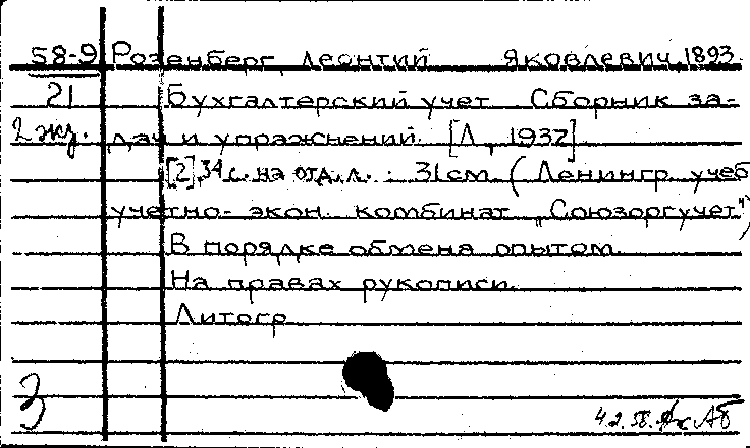 58-9 Розенберг, Леонтий Яковлевич, 1893.
21 Бухгалтерский учет. Сборник за-
2 экз. дач и упражнений. [Л., 1932]
[2], 34 с. на отд. л. : 31 см. (Ленингр. учеб
учетно-экон. комбинат „Союзоргучет")
В порядке обмена опытом.
На правах рукописи.
Литогр.
3
4.2.58.